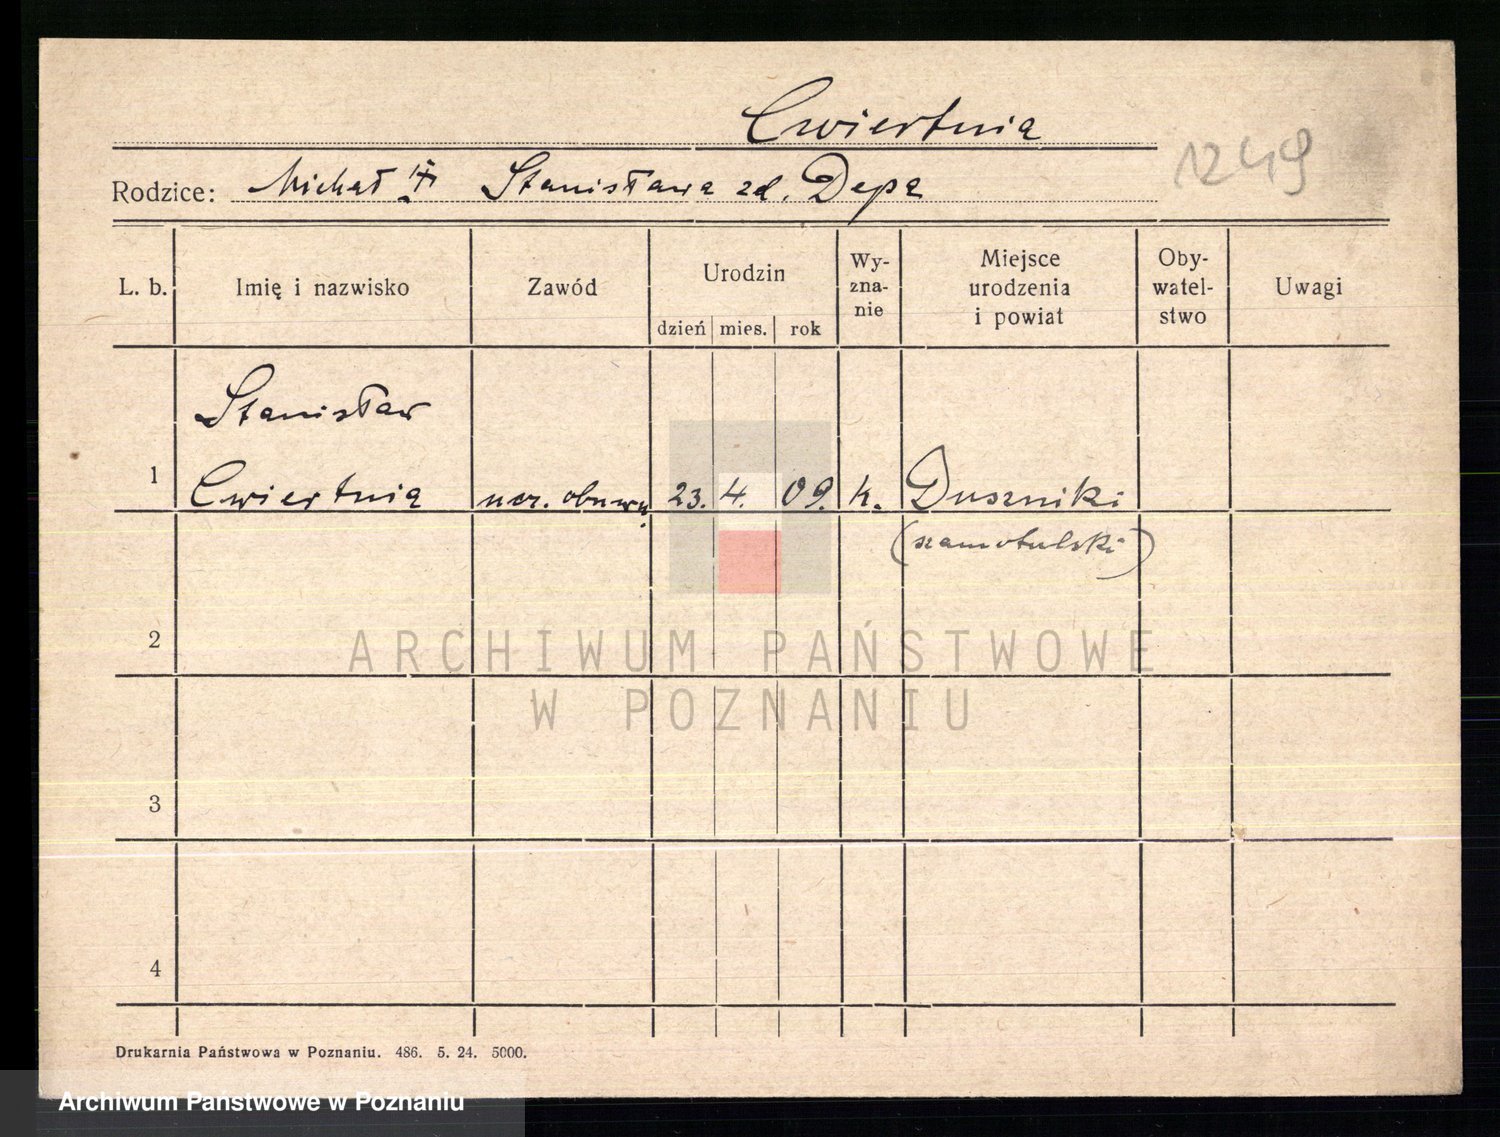 Cwiertnia
1249
Rodzice: Michał Stanisława zd. Depa
L. b. Imię i nazwisko Zawód Urodzin dzień mies. rok Wy-zna-nie Miejsce urodzenia i powiat Oby-watel-stwo Uwagi
Stanisław
1 Cwiertnia ucz. 23. 4. 09. k. Duszniki
(szamotulski)
2
ARCHIWUM PAŃSTWOWE
W POZNANIU
3
4
Drukarnia Państwowa w Poznaniu. 486. 5. 24. 5000.
Archiwum Państwowe w Poznaniu